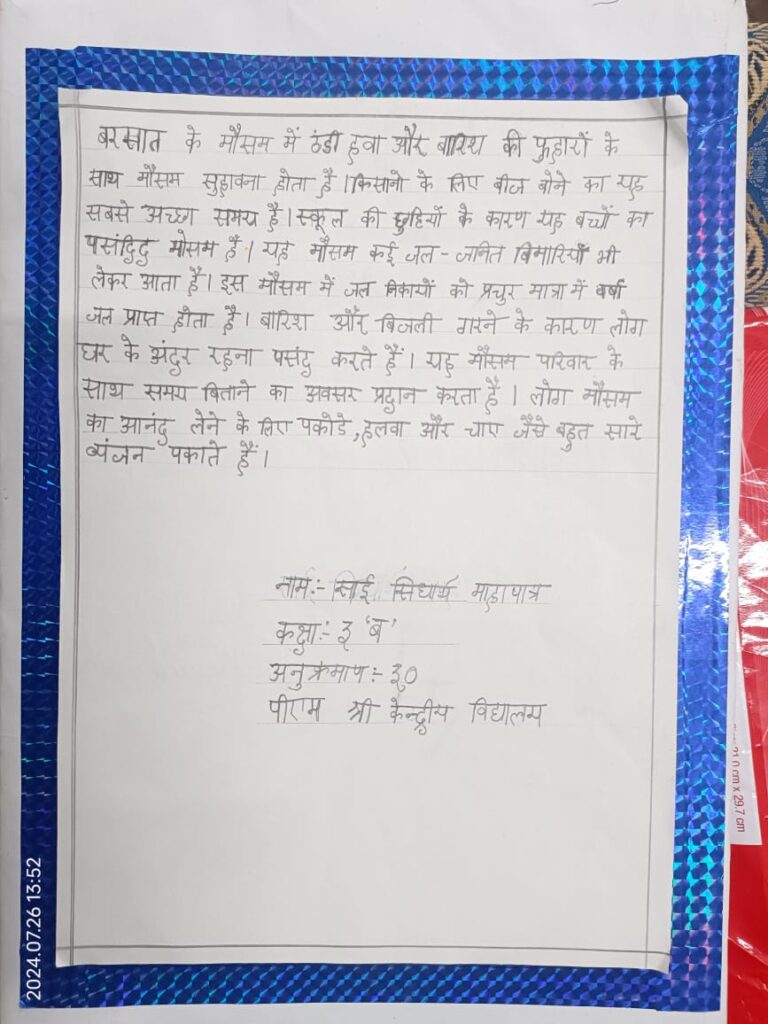 बरसात के मौसम में ठंडी हवा और बारिश की फुहारों के
साथ मौसम सुहावना होता है। किसानो के लिए बीज बोने का यह
सबसे अच्छा समय है। स्कूल की छुट्टियों के कारण यह बच्चों का
पसंदिदु मौसम है। यह मौसम कई जल-जनित बिमारियाँ भी
लेकर आता है। इस मौसम में जल निकायों को प्रचुर मात्रा में वर्षा
जल प्राप्त होता है। बारिश और बिजली गरने के कारण लोग
घर के अंदर रहना पसंद करते हैं। यह मौसम परिवार के
साथ समय बिताने का अवसर प्रदान करता है। लोग मौसम
का आनंद लेने के लिए पकोडे, हलवा और चाए जैसे बहुत सारे
व्यंजन पकाते हैं।
नाम:- साई सिधार्थ माहापात्र
कक्षा:- ३ 'ब'
अनुक्रमाण:- ३०
पीएम श्री केन्द्रीय विद्यालय
21.0 cm x 29.7 cm
2024.07.26 13:52